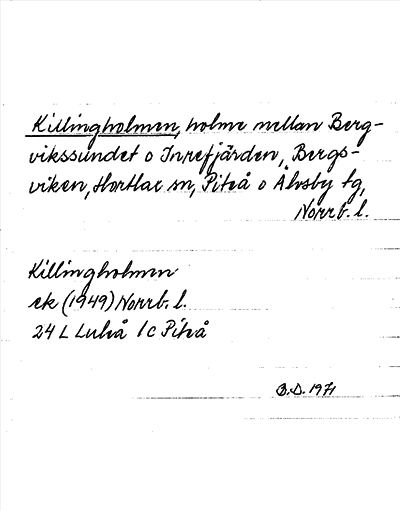 Killingholmen, holme mellan Berg-
vikssundet o Inrefjärden, Bergs-
viken, Hortlax sn, Piteå o Älvsby tg,
Norrb. l.
Killingholmen
ek (1949) Norrb. l.
24 L Luleå 1c Piteå
B.D. 1971